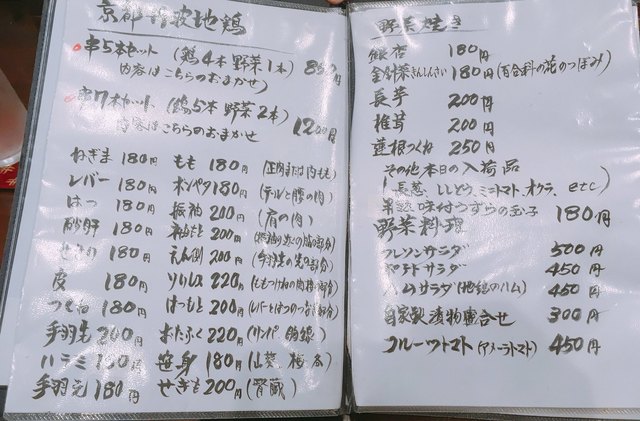 京都丹波地鶏
串5本セット (鶏4本 野菜1本)
内容はこちらのおまかせ
串7本セット (鶏5本 野菜2本) 1200円
内容はこちらのおまかせ
ねぎま 180円 もも 180円
レバー 180円 ボンパタ 180円
はつ 180円 振袖 200円 (肩の肉)
砂肝 180円 200円
180円 えんがわ 200円
皮 180円 ソリレス 220円
つくね 180円 はつもと 200円
手羽先 200円 おたふく 220円 (リンパ 胸腺)
ハラミ 笹身 180円 (山葵 梅 各)
手羽元 180円 せぎも 200円 (腎臓)
野菜焼き
銀杏 180円
金針菜 きんしんさい 180円 (百合科の花のつぼみ)
長芋 200円
椎茸 200円
蓮根つくね 250円
その他本日の入荷品
(長葱、ししとう、ミニトマト、オクラ、etc)
半熟味付うずらの玉子 180円
野菜料理
クレソンサラダ 500円
ポテトサラダ 450円
ハムサラダ (地鶏のハム) 450円
自家製漬物盛合せ 300円
フルーツトマト (アメーラトマト) 450円